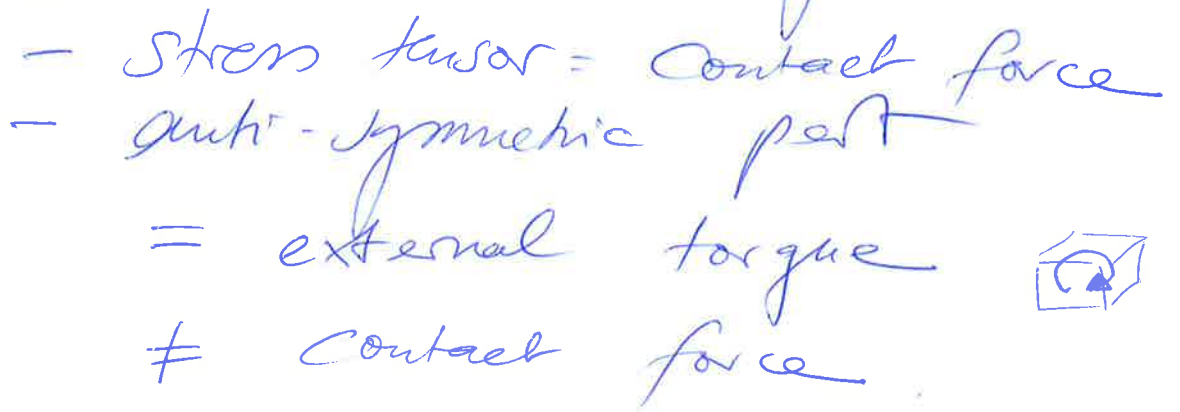 - Stress tensor = contact force
- anti-symmetric part
= external torque
≠ contact force